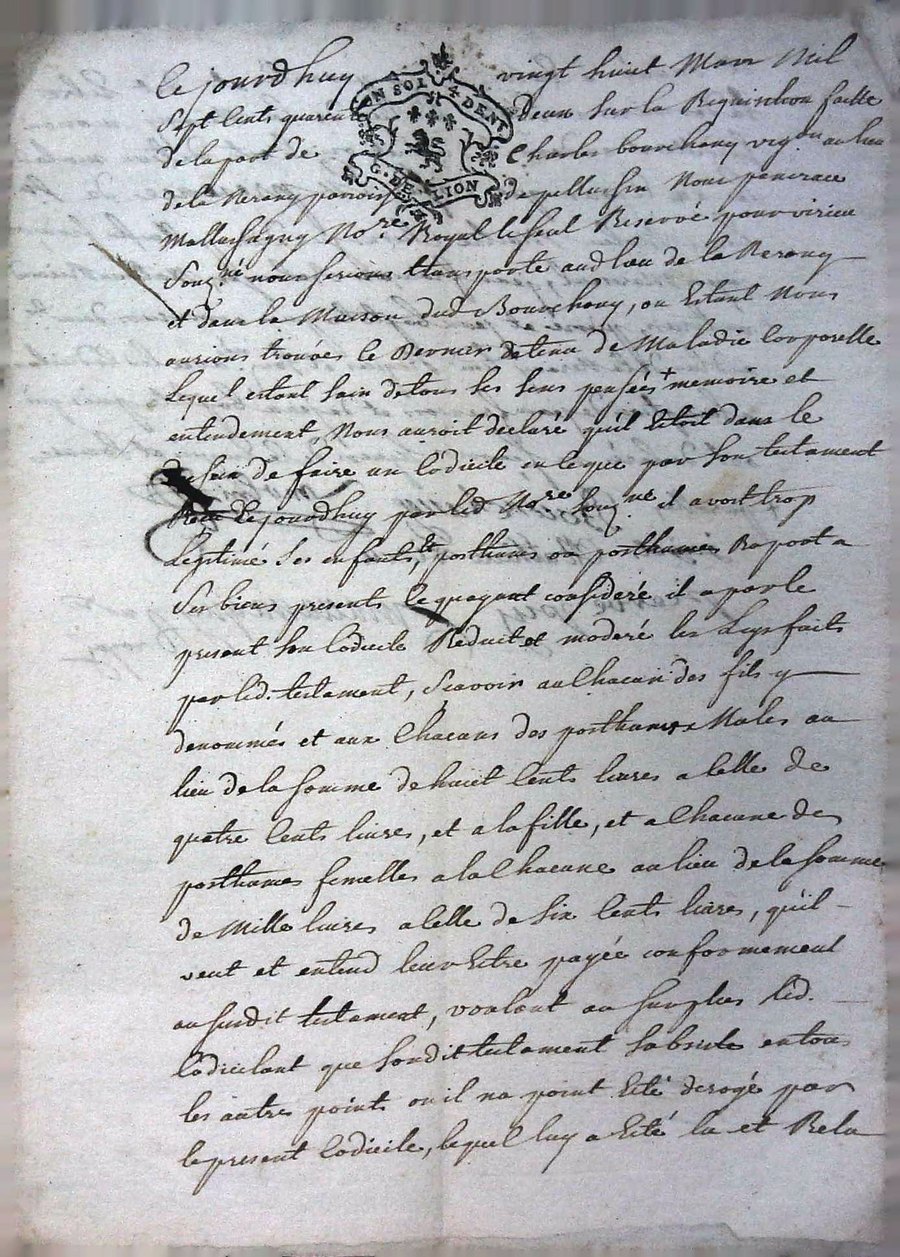 Ce jourdhuy vingt huit Mars Mil
Sept Cents quarente deux sur la Requisition faitte
UN SOL 4 DEN.T
G. DE LION
de la part de Charles bourchany vig.on au lieu
de la Rerany paroisse de pellussin Nous pancrace
Mallassagny No.re Royal le seul Reservé pour virieu
Souz.né nous serions transporté aud lieu de la Rerany
et dans la Maison dud Bourchany, ou Estant Nous
aurions trouvés le Dernier detenu de Maladie Corporelle
Lequel estant sain de tous ses sens pensées + memoire et
entendement, Nous auroit declaré qu'il Etoit dans le
dessein de faire un Codicile en ce que par son testament
Receu Cejourdhuy par led No.re Souz.né il avoit trop
Legitimé Ses enfants, Et posthumes ou posthumes Raport a
Ses biens presents Ce quayant consideré il a par le
present son Codicile Reduit et moderé les Legs faits
par led. testament, Scavoir au Chacun des fils y
denommés et aux Chacuns des posthumes Males au
lieu de la somme de huit Cents livres a Celle de
quatre Cents livres, et a la fille, et a Chacune des
posthumes femelles a la Chacune au lieu de la somme
de Mille livres a Celle de six Cents livres, qu'il
veut et entend leur Estre payée conformement
au susdit testament, voulant au surplus led.
Codicilant que sondit testament subsiste en tous
les autre points ou il na point Eté derogé par
le present Codicile, lequel luy a Eté lu et Relu